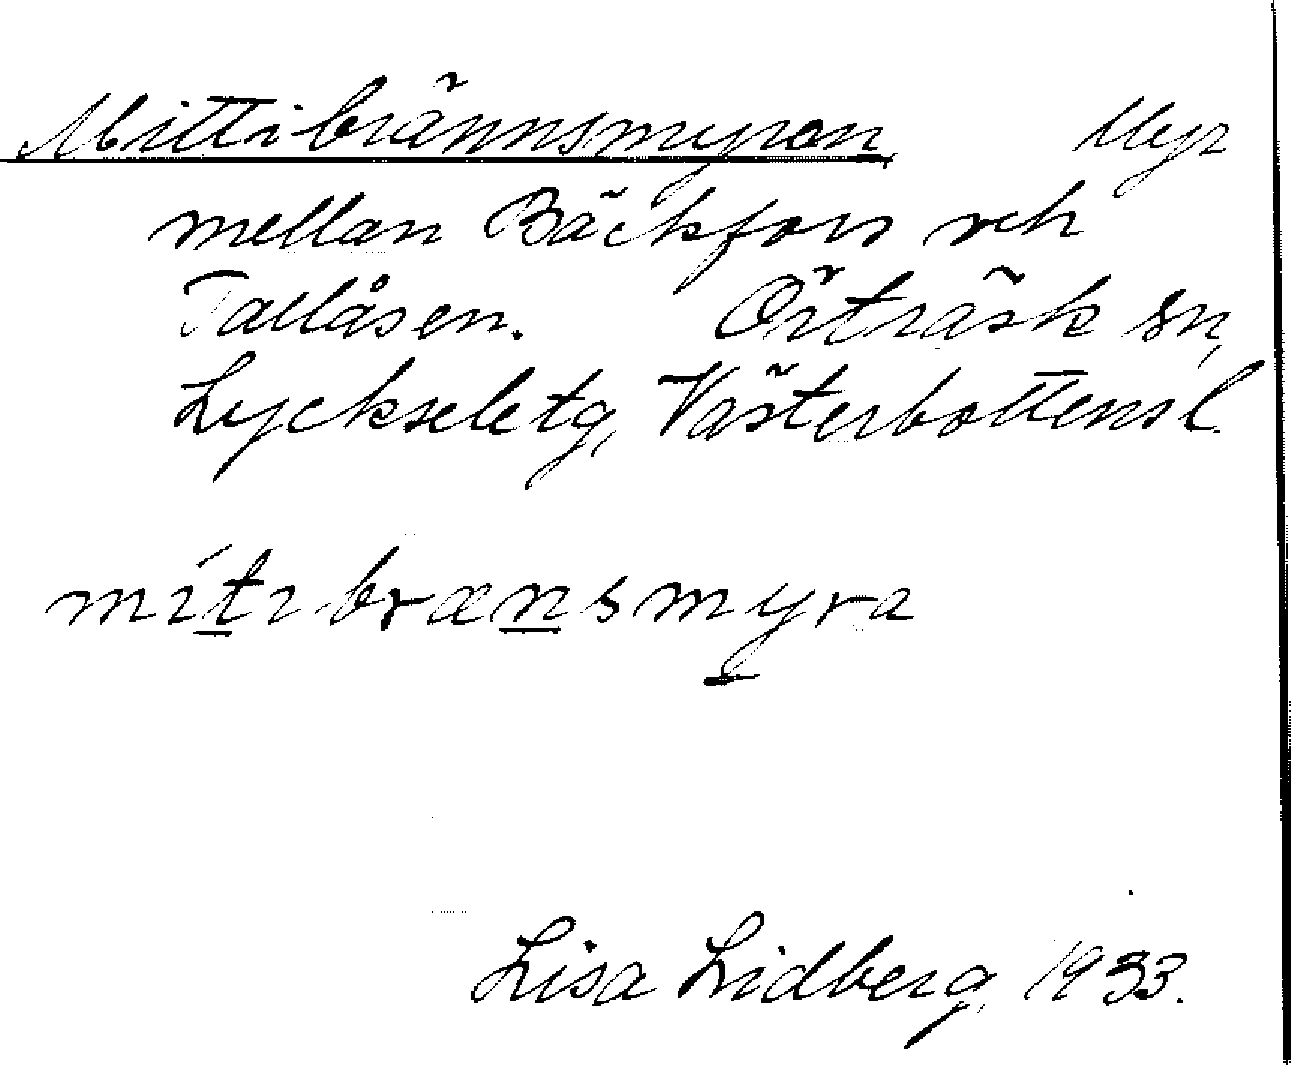 Mittibrännsmyran Myr
mellan Bäckfors och
Tallåsen. Örträsk sn,
Lycksele tg, Västerbottens l.
mítibrænsmyra
Lisa Lidberg, 1933.